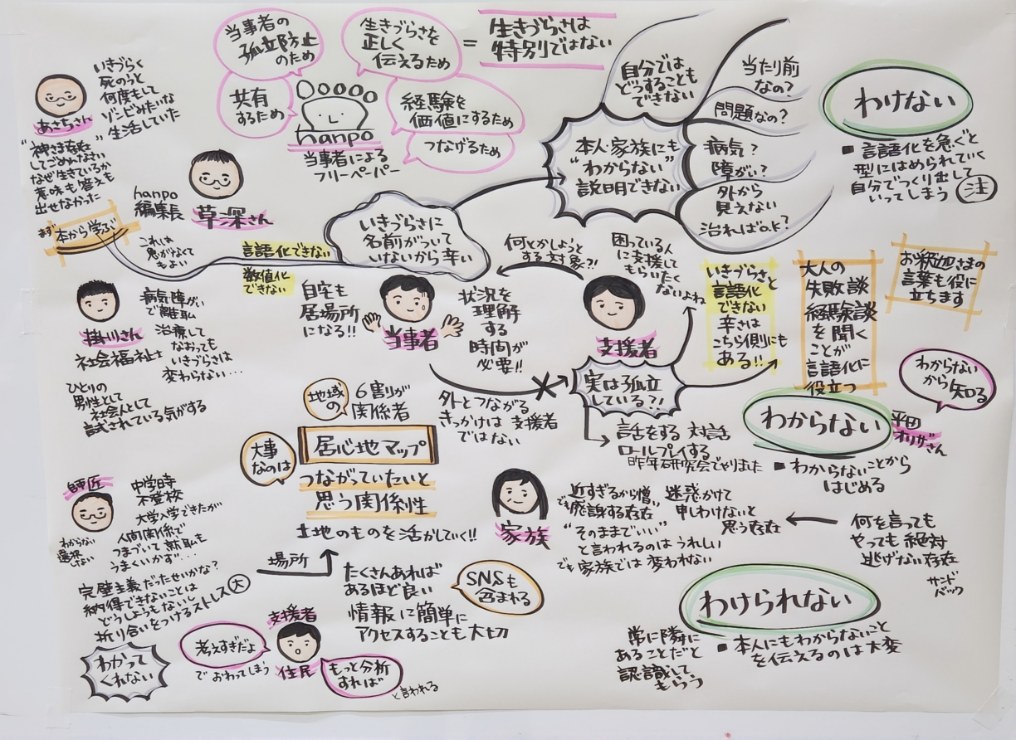 当事者の
孤立防止
のため
生きづらさを
正しく
伝えるため
=
生きづらさは
特別ではない
共有
するため
hanpo
当事者による
フリーペーパー
経験を
価値にするため
つなげるため
あさちさん
いきづらく
死のうと
何度もして
ゾンビみたいな
生活していた
なぜ生きているか
意味も答えも
出せなかった
まず
本から学ぶ
hanpo
編集長
草深さん
これは
もよい
言語化できない
数値化
できない
いきづらさに
名前がついて
いないから辛い
本人家族にも
"わからない"
説明できない
自分では
どうすることも
できない
当たり前
なの?
問題なの?
病気?
障がい?
外から
見えない
治ればo.k?
わけない
■ 言語化を急ぐと
型にはめられていく
自分でつくり出して
いってしまう
注
掛川さん
社会福祉士
病気障がい
で離職
治療して
なおっても
いきづらさは
変わらない…
ひとりの
男性として
社会人として
試されている気がする
自宅も
居場所
になる!!
当事者
状況を
理解
する
時間が
必要!!
何とかしようと
する対象?!
困っている人
に支援して
もらいたく
ないよね
支援者
いきづらさと
言語化
できない
辛さは
こちら側にも
ある!!
大人の
失敗談
経験談
を聞く
ことが
言語化に
役立つ
お釈迦さまの
言葉も役に
立ちます
外とつながる
きっかけは 支援者
ではない
実は孤立
している?!
話をする 対話
ロールプレイする
昨年研究会でやりました
わからない
■ わからないことから
はじめる
わからない
から知る
平田
オリザさん
地域
の
6割りが
関係者
大事
なのは
居心地マップ
つながっていたいと
思う関係性
土地のものを活かしていく!!
場所
たくさんあれば
あるほど良い
情報に簡単に
アクセスすることも大切
SNSも
含まれる
師匠
中学時
不登校
大学入学できたが
人間関係で
つまづいて 就職も
うまくいかず…
わからない
完璧主義だったせいかな?
納得できないことは
どうしようもないし
折り合いをつけるストレス
大
わかって
くれない
考えすぎだよ
で おわってしまう
支援者
住民
もっと分析
すれば
と言われる
家族
近すぎるから憎い
でも感謝する存在
"そのままでいい"
と言われるのは うれしい
でも 家族では 変われない
迷惑かけて
申しわけないと
思う存在
何を言っても
やっても 絶対
逃げない存在
サンド
バック
わけられない
■ 本人にもわからないこと
を伝えるのは大変
常に隣に
あることだと
認識して
もらう